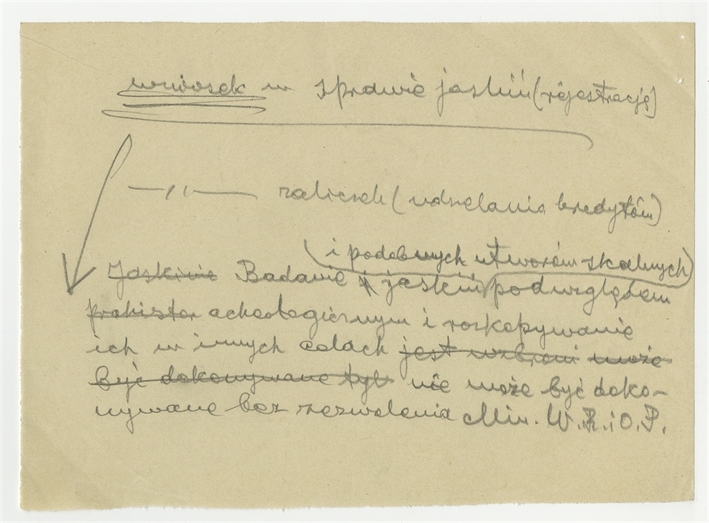 wniosek w sprawie jaskiń (rejestracje)
—〃— zaliczek (udzielania kredytów)
i podobnych utworów skalnych)
Jaskinie Badanie jaskiń pod względem
prohistor acheologicznym i rozkopywanie
ich w innych celach jest wzbroni może
być dokonywane tyl nie może być doko-
nywane bez zezwolenia Min. W.R.i O.P.